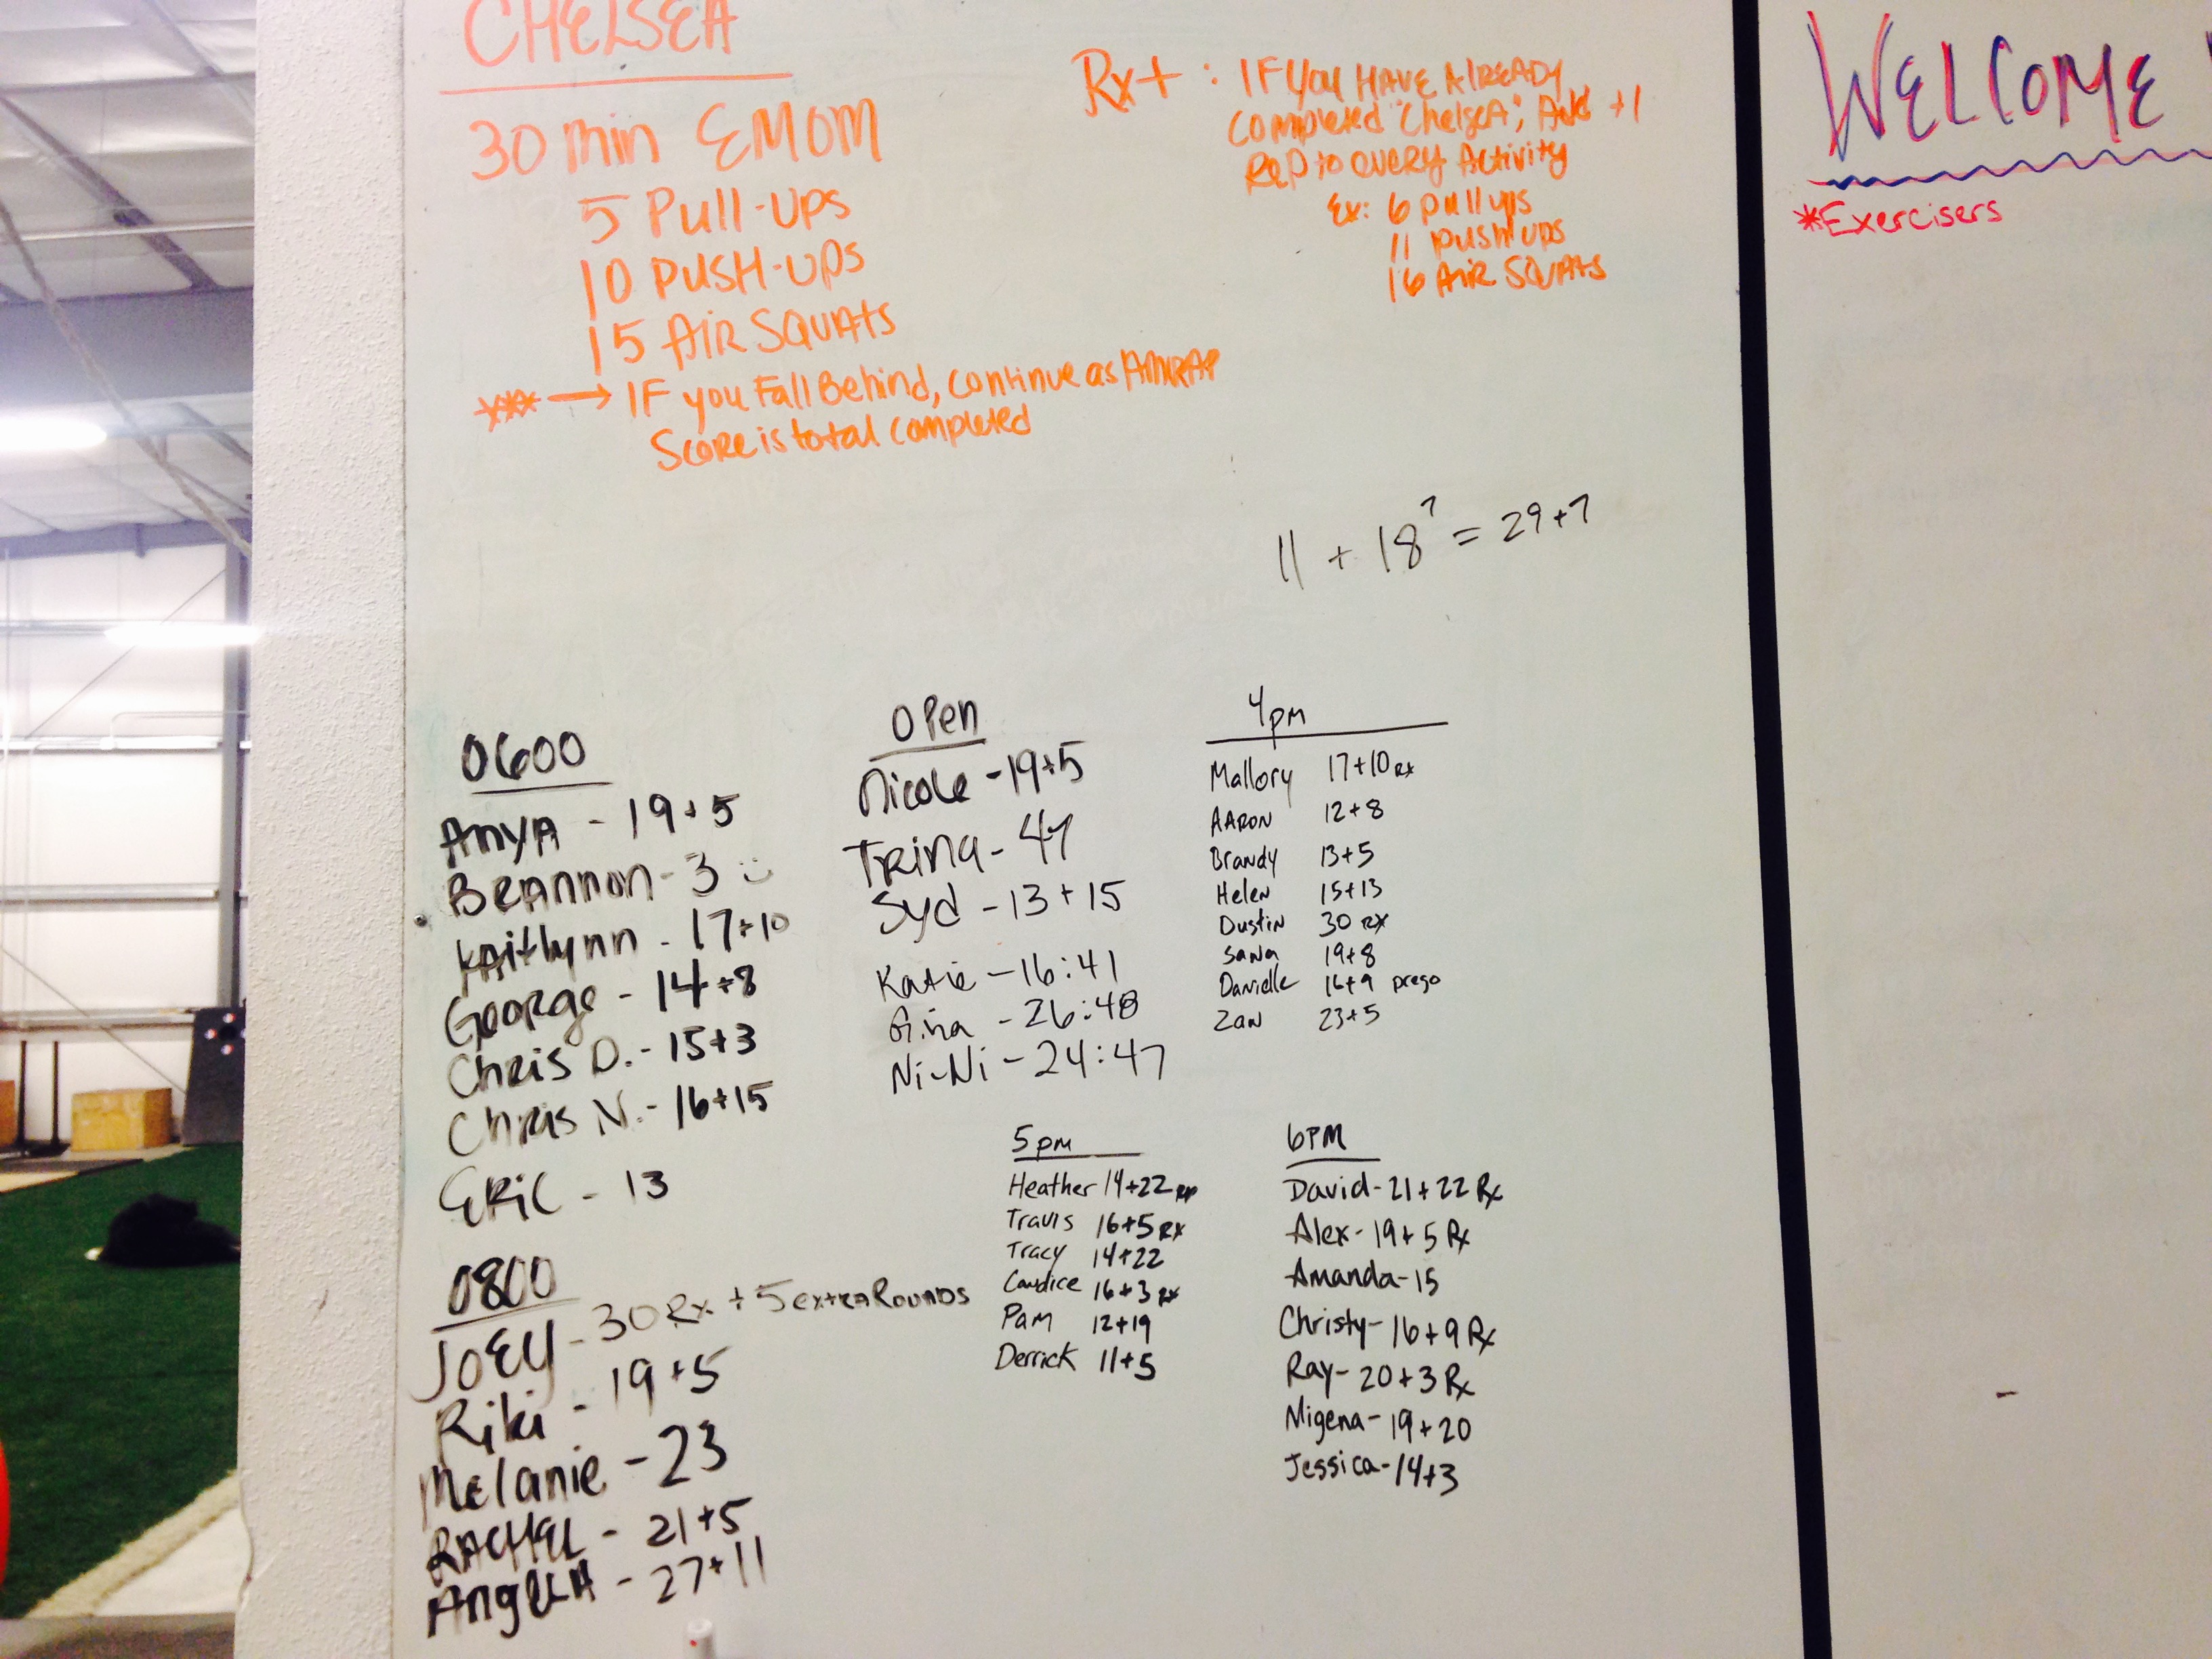 CHELSEA
30 min EMOM
5 Pull-ups
10 PUSH-UPS
15 AIR SQUATS
*** → IF you Fall Behind, continue as AMRAP
Score is total completed
Rx+ : IF YOU HAVE AlREADY
completed "ChelseA", Add +1
Rep to every Activity
Ex: 6 pull ups
11 push ups
16 AIR SQUATS
WELCOME
*Exercisers
11 + 18⁷ = 29+7
0600
AnyA - 19+5
BRAnnon - 3 :)
KAitlynn - 17+10
George - 14+8
Chris D. - 15+3
Chris N. - 16+15
ERIC - 13
0800
JOEY - 30 Rx + 5 extRA ROUNDS
Riki - 19+5
Melanie - 23
RACHEL - 21+5
AngelA - 27+11
OPen
Nicole - 19+5
TRINA - 47
Syd - 13+15
Katie - 16:41
Gina - 26:48
Ni-Ni - 24:47
4pm
Mallory 17+10 Rx
AARON 12+8
Brandy 13+5
Helen 15+13
Dustin 30 Rx
Sana 19+8
Danielle 16+9 prego
Zan 23+5
5pm
Heather 14+22
Travis 16+5 Rx
Tracy 14+22
Candice 16+3 Rx
Pam 12+19
Derrick 11+5
6PM
David- 21+22 Rx
Alex- 19+5 Rx
Amanda- 15
Christy- 16+9 Rx
Ray- 20+3 Rx
Migena- 19+20
Jessica- 14+3